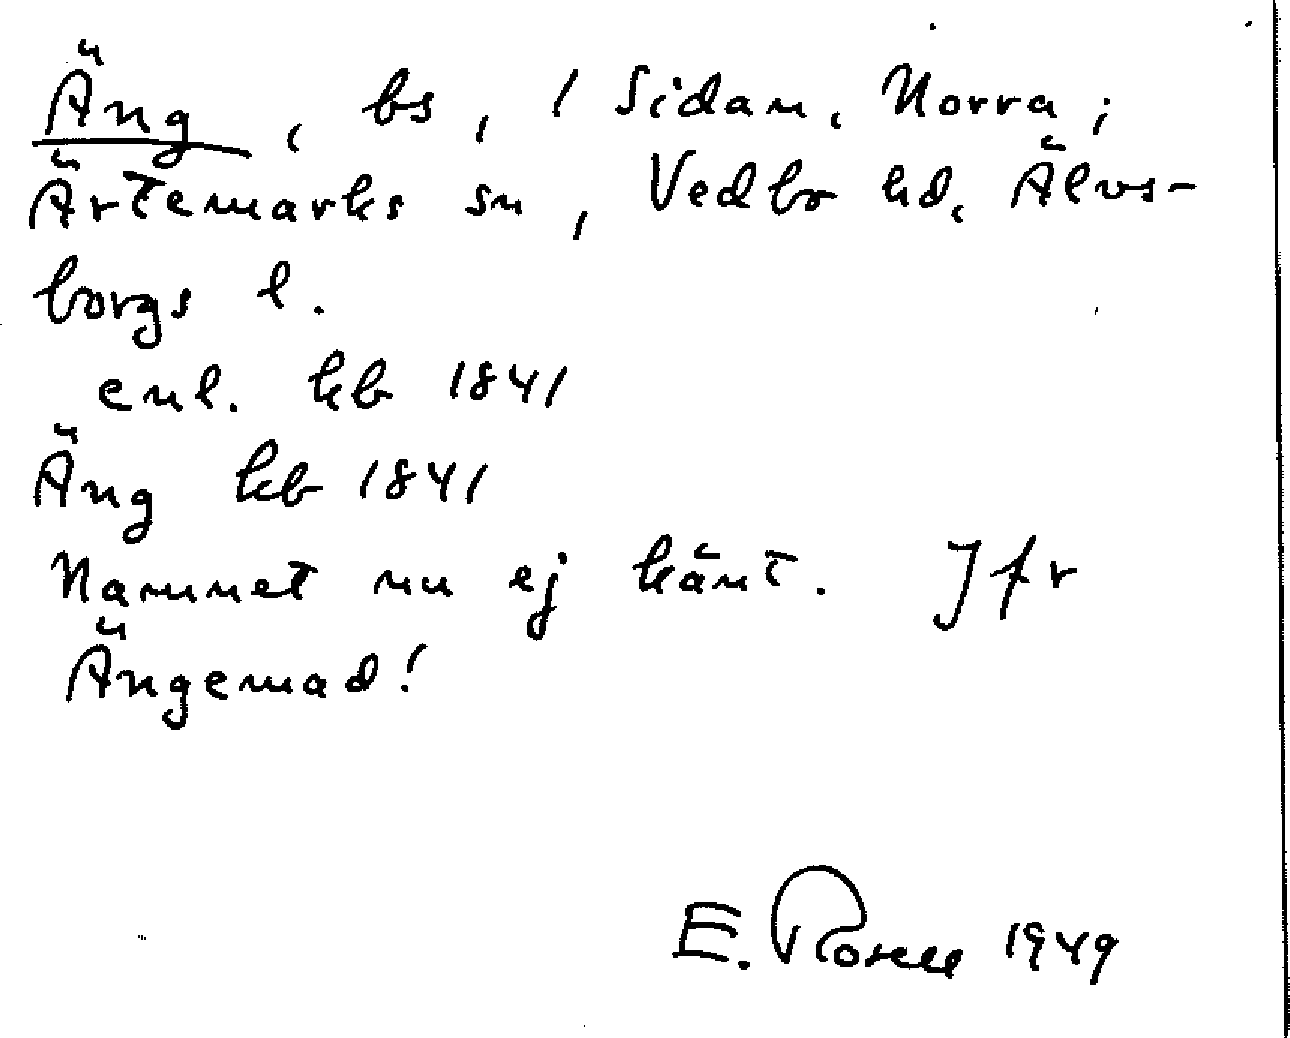 Äng, bs, / Sidan, Norra;
Ärtemarks sn, Vedbo hd, Älvs-
borgs l.
enl. kb 1841
Äng kb 1841
Namnet nu ej känt. Jfr
Ängemad!
E. Rosell 1949